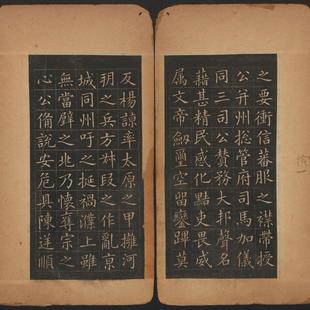 之要衝信蕃服之襟帶授
公并州揔管府司馬加儀
同三司公贊務大邦聲名
藉甚精民感化黠吏畏威
属文帝劒璽空留鑾蹕莫
反楊諒率太原之甲擁河
朔之兵方叔段之作亂京
城同州吁之挻禍濮上雖
無當璧之兆乃懷奪宗之
心公備說安危具陳逆順